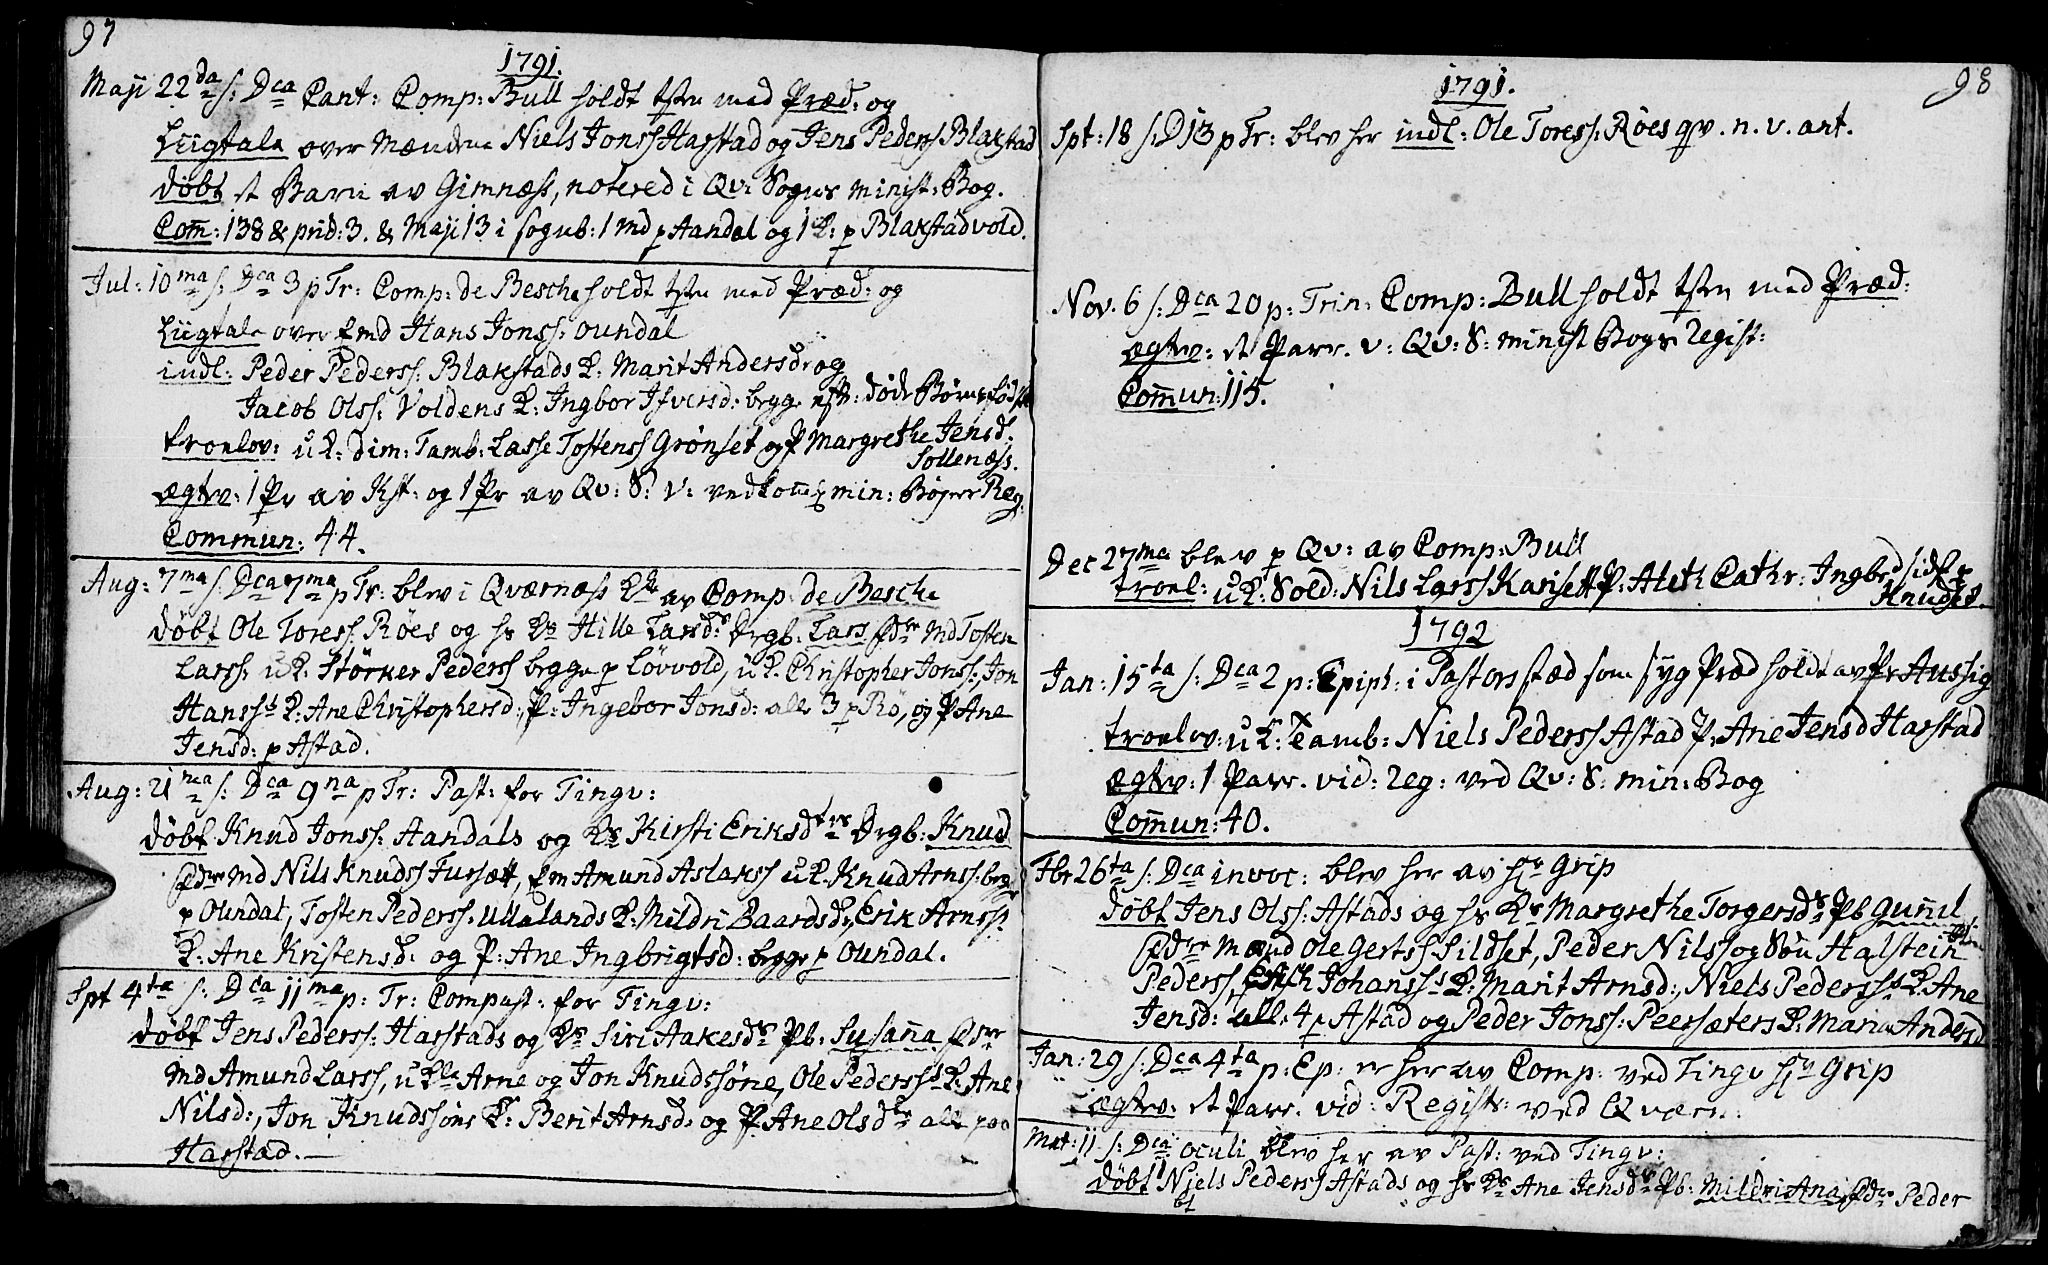 97
1791.
Maji 22da s: Dca Cant: Comp: Bull holdt tsten med Præd: og
Liigtale over Mændene Niels Jonss Harstad og Jens Pederss Blakstad
døbt et Barn av Gimnæss, notered i Qv: Sogns minist: Bog.
Com̄: 138 & prid: 3. & Maji 13 i sogneb: 1 Md p Aandal og 1 K: p Blakstadvold.
Jul: 10ma s: Dca 3 p Tr: Comp: de Besche holdt tsten med Præd: og
Liigtale over Emd Hans Jonss: oundal
indl: Peder Pederss: Blakstads K: Marit Andersdr og
Jacob Olss: Voldens K: Ingbor Ifversd: begge eft: døde Børns fødsel
troelov: u K: dim: Tamb: Lasse Tostenss Grønset og P Margrethe Jensd:
Sollenæss.
ægtv: 1 Pr av Kst: og 1 Pr av Qv: S: v: vedkom̄: min: Bøgers Reg:
Commun: 44.
Aug: 7ma s: Dca 7ma p Tr: blev i Qværnæss Kke av Comp: de Besche
døbt Ole Toress: Røes og hs Ks Hille Larsd:s Drgb: Lars fdre Md Tosten
Larss: u K: Størker Pederss begge p Løvvold, u K: Christopher Jonss:, Jon
Hanss:s K: Ane Christophersd:, P: Ingebor Jonsd: alle 3 p Rø, og P: Ane
Jensd: p Astad.
Aug: 21ma s: Dca 9na p Tr: Past: for Tingv:
døbt Knud Jonss: Aandals og Ks Kirsti Eriksdtrs Drgb: Knud
fdre Md Nils Knudss Fursætt, Em Amund Aslakss u K: Knud Arnss: begge
p Oundal, Tosten Pederss: Ullalands K: Mildri Baardsd:, Erik Arnss:
K: Ane Kristensd: og P: Ane Ingbrigtsd: begge p Oundal.
Spt 4ta s: Dca 11ma p: Tr: Compast: for Tingv:
døbt Jens Pederss: Harstads og Ks Siri Aakesdrs Pb: Susan̄a fdre
Md Amund Larss, u Kle Arne og Jon Knudssøne, Ole Pederss:s K: Ane
Nilsd:, Jon Knudssøns K: Berit Arnsd: og P: Ane Olsdtr alle paa
Harstad.
98
1791.
Spt: 18 s: D 13 p Tr: blev her indl: Ole Toress: Røes qv. n. v. ant.
Nov. 6 s: Dca 20 p: Trin: Comp: Bull holdt tsten med Præd:
ægtv: et Parr. v: Qv: S: minist Bogs Regist:
Com̄un: 115.
Dec 27ma blev p Qv: av Comp: Bull
troel: u K: Sold: Nils Larss Karisett P: Aleth Cathr: Ingbrd
Knudsd.
1792
Jan: 15ta s: Dca 2 p: Epiph: i Pastors stæd som syg Præd holdt av Pr Aussig
troelov: u K: Tamb: Niels Pederss Astad P: Ane Jensd Harstad
ægtv: 1 Parr. vid: Reg: ved Qv: S: min: Bog
Com̄un: 40.
Fbr 26ta s: Dca invoc: blev her av Hr Grip
døbt Jens Olss: Astads og hs Ks Margrethe Torgersdrs Pb Gun̄il
fdre Mand Ole Gertss Sildset, Peder Nilss og Søn Halstein
Pederss, Erich Johanss:s K: Marit Arnsd:, Niels Pederss:s K: Ane
Jensd: alle 4 p Astad og Peder Jonss: Peersæters K: Maria Andersd
Jan: 29 s: Dca 4ta p: Ep: er her av Comp: ved Tingv Hr Grip
ægtv: et Parr. vid: Registr: ved Qværn:
Mrt: 11 s: Dca oculi blev her av Past: ved Tingv:
døbt Niels Pederss Astads og hs Ks Ane Jensdrs Pb: Mildri Ana fdre Peder